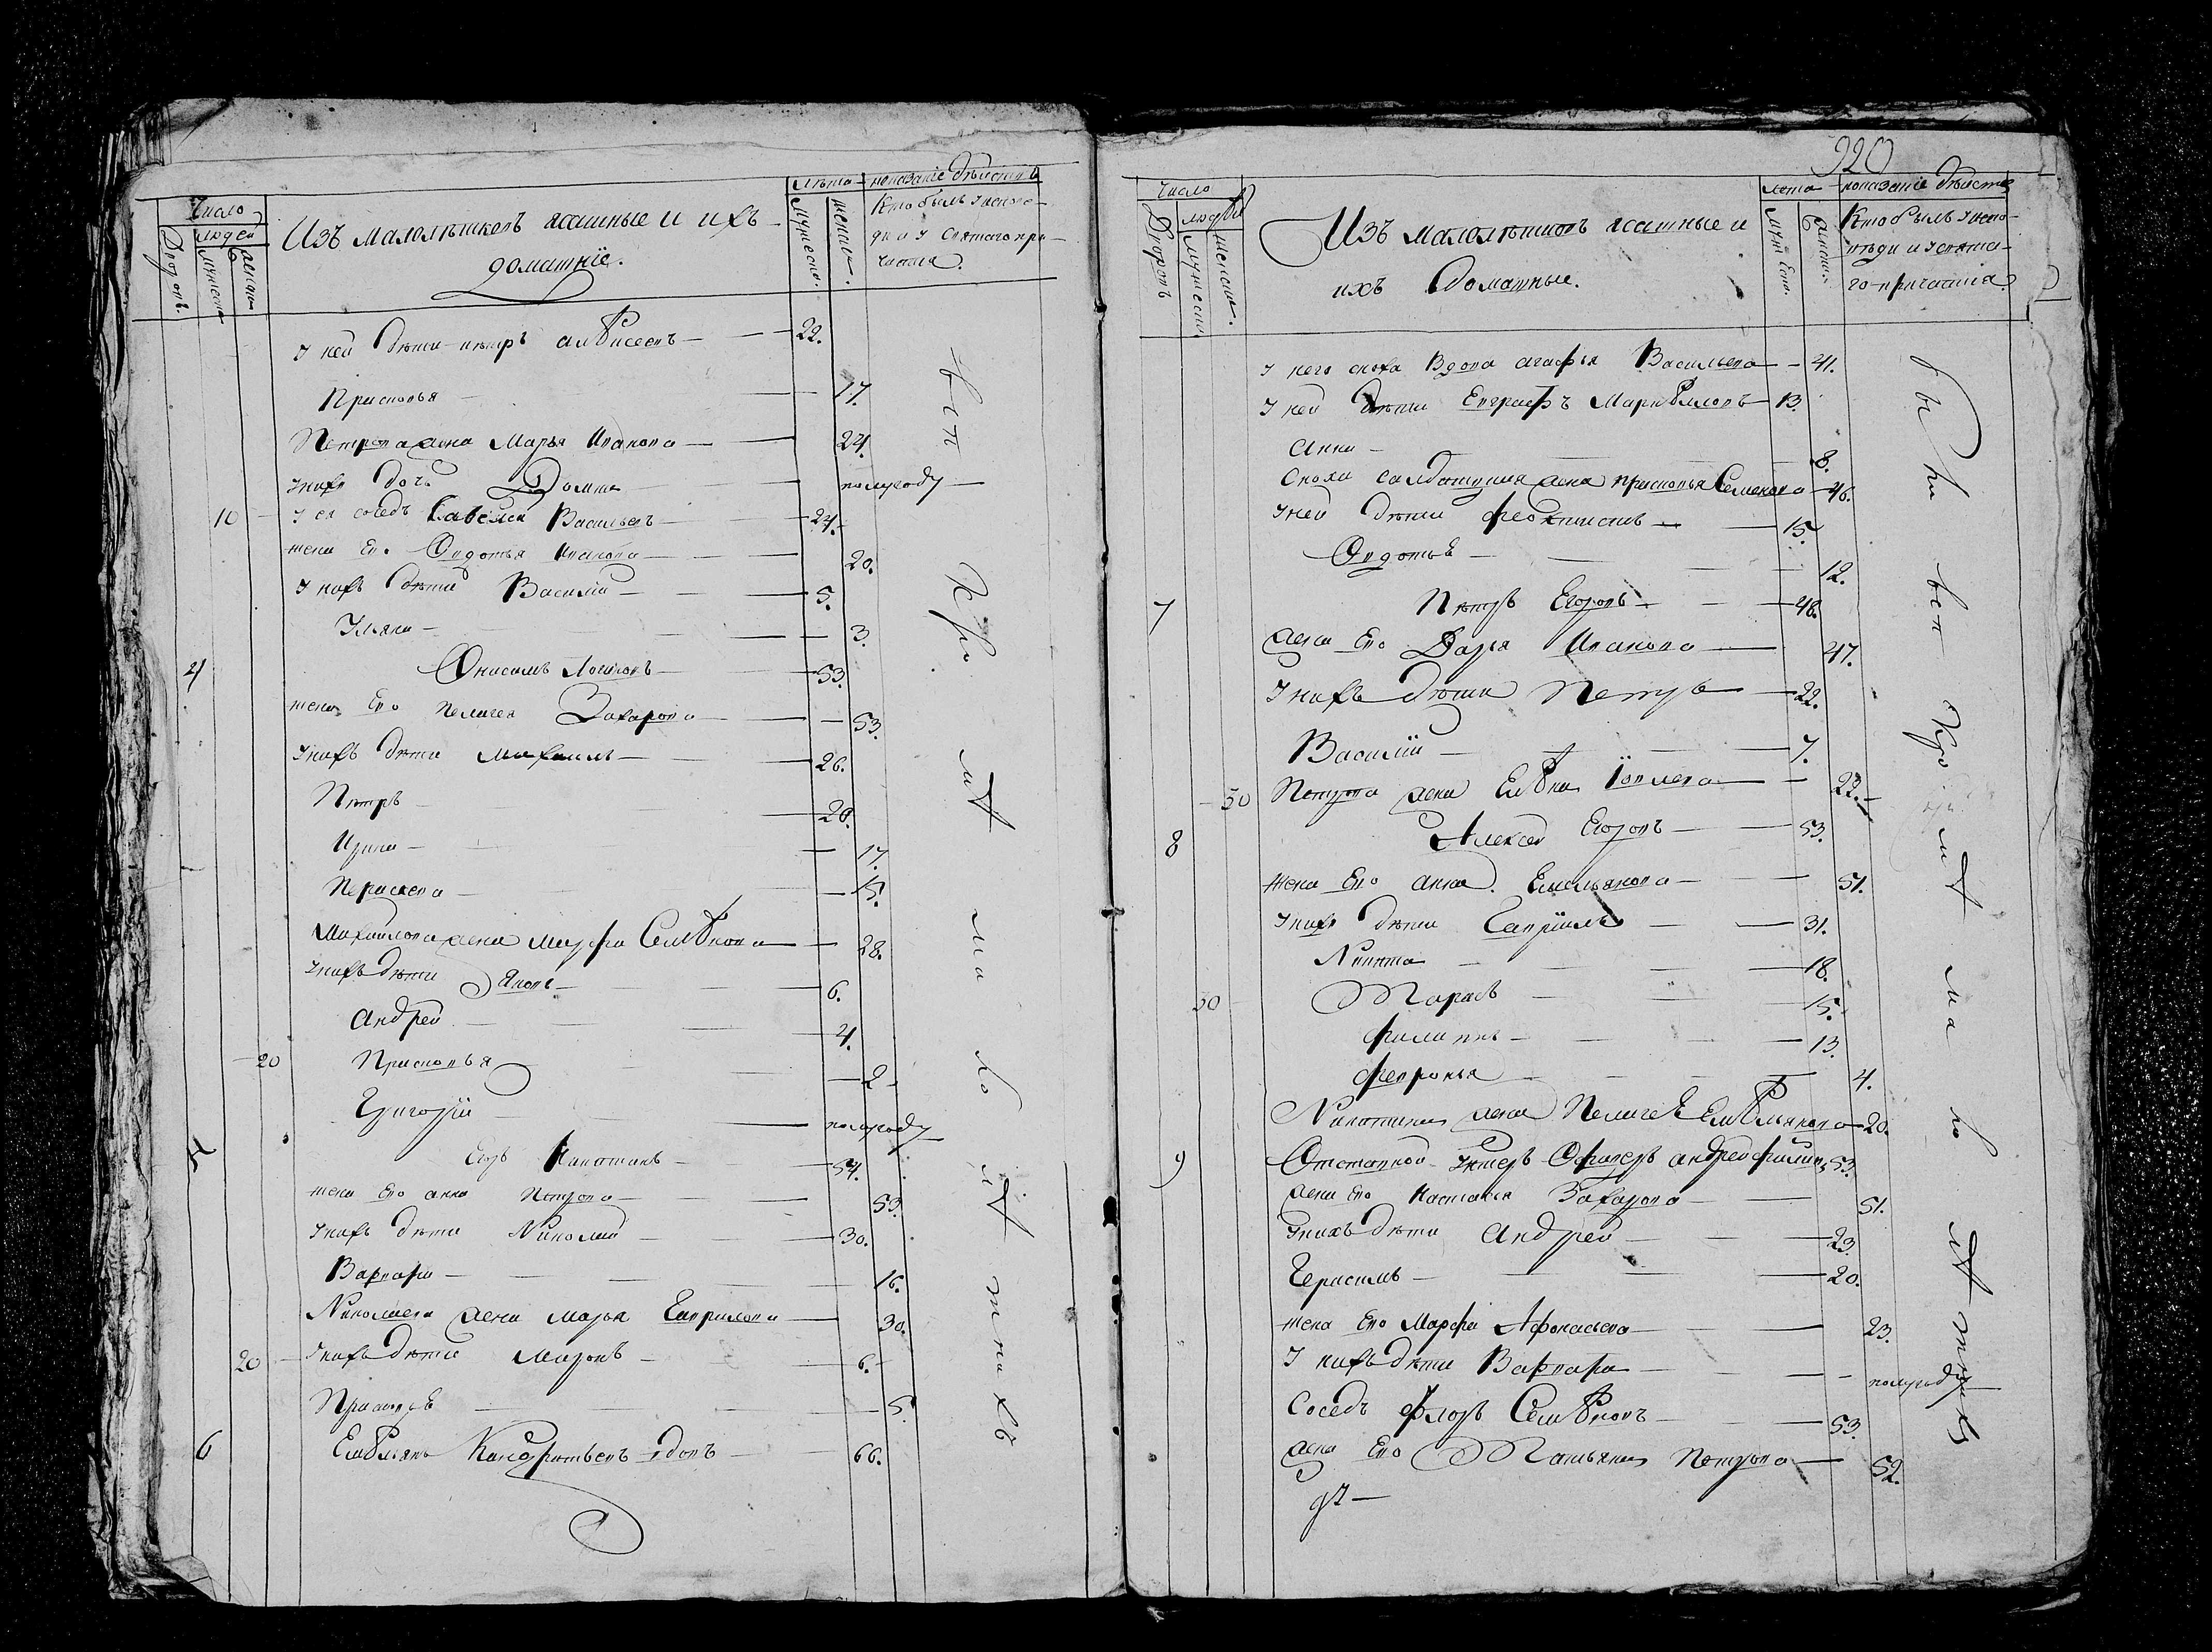 Число
людей
Дворовъ
мужеска
женска
Изъ малолѣтковъ ясашные и ихъ
домашніе.
лѣта
мужеска.
женска.
показаніе дѣйствъ
Кто былъ у испове-
ди и у святаго при-
частія.
У ней дѣти пѣтръ алѣксеевъ 22.
Присковья 17.
Петрова жена Марья Иванова 24.
у нихъ дочь Домна полугоду
10 У ея соседъ Савелей Васильевъ 24.
жена Ево Овдотья Иванова 20.
У нихъ дѣти Василій 5.
Ульяна 3.
4 Онисимъ Логиновъ 53.
жена Ево Пелагея Захарова 53.
У нихъ дѣти Михаилъ 26.
Пѣтръ 20.
Ирина 17.
Парасковья 15.
Михайлова жена Марфа Семѣнова 28.
У нихъ дѣти Яковъ 6.
Андрей 4.
20 Присковья 2
Григорій полугоду
5 Егоръ Капитоновъ 54.
жена Ево анна Петрова 53.
У нихъ дѣти Николай 30.
Варвара 16.
Николаева жена марья Гаврилова 30.
20 У нихъ дѣти Миронъ 6.
Присковья 5.
6 Емѣльянъ Кандратьевъ вдовъ 66.
всѣ кромѣ малолѣтнихъ
920
Число
людей
Дворовъ
мужеска
женска.
Изъ малолѣтковъ ясашные и
ихъ домашные.
лѣта
мужеска.
женска.
показаніе дѣйствъ
Кто былъ у испо-
вѣди и у свята-
го причастія.
У него сноха Вдова агафья Васильева 41.
У ней дѣти Евграфъ Маркѣловъ 13.
Анна 8.
Сноха салдатушка жена присковья Семенова 46.
У ней дѣти феоктистъ 15.
Овдотья 12.
7 Пѣтръ Егоровъ 48.
жена Ево Дарья Иванова 47.
У нихъ дѣти Петръ 22.
Василій 7.
30 Петрова жена Елѣна Іовлева 22.
8 Алексей Егоровъ 53.
жена Ево анна Емельянова 51.
У нихъ дѣти Гавріилъ 31.
Никита 18.
30 Тарасъ 15.
филипъ 13.
февронья 4.
Никитина жена Пелагея Емѣльянова 20.
9 Отставной Унтеръ Офицеръ андрей филип 53.
жена ево Настасья Захарова 51.
У нихъ дѣти Андрей 23.
Герасимъ 20.
жена Ево Марфа Афонасьева 23.
У нихъ дѣти Варвара полугоду
Соседъ Флоръ Семѣновъ 53.
жена Ево Татьяна Петрова 52.